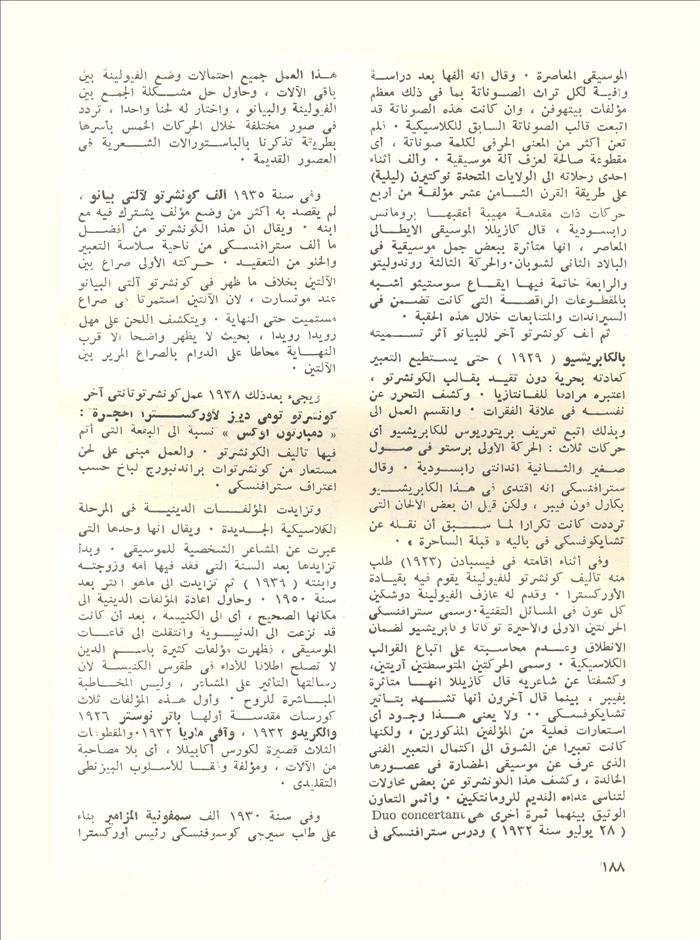 الموسيقى المعاصرة ٠ وقال انه ألفها بعد دراسة
وافية لكل تراث الصوناتة بما فى ذلك معظم
مؤلفات بيتهوفن ، وان كانت هذه الصوناتة قد
اتبعت قالب الصوناتة السابق للكلاسيكية ٠ فلم
تعن أكثر من المعنى الحرفى لكلمة صوناتة ، أى
مقطوعة صالحة لعزف آلة موسيقية ٠ وألف أثناء
احدى رحلاته الى الولايات المتحدة نوكتيرن (ليلية)
على طريقة القرن الثامن عشر مؤلفة من أربع
حركات ذات مقدمة مهيبة أعقبها برومانس
رابسودية ، قال كازيللا الموسيقى الايطالى
المعاصر ، انها متأثرة ببعض جمل موسيقية فى
البالاد الثانى لشوبان٠والحركة الثالثة روندوليتو
والرابعة خاتمة فيها ايقاع سوستيثو أشبه
بالمقطوعات الراقصة التى كانت تضمن فى
السيراندات والمتتابعات خلال هذه الحقبة ٠
ثم ألف كونشرتو آخر للبيانو آثر تسميته
بالكابريشيو ( ١٩٢٩ ) حتى يستطيع التعبير
كعادته بحرية دون تقيد بقالب الكونشرتو ،
اعتبره مرادفا للفانتازيا ٠ وكشف التحرر عن
نفسه فى علاقة الفقرات ٠ وانقسم العمل الى
وبذلك اتبع تعريف بريتوريوس للكابريشيو أى
حركات ثلاث : الحركة الأولى برستو فى صول
صغير والثانية اندانتى رابسودية ٠ وقال
سترافنسكى انه اقتدى فى هذا الكابريشيو
بكارل فون فيبر ، ولكن قيل ان بعض الألحان التى
ترددت كانت تكرارا لما سبق أن نقله عن
تشايكوفسكى فى باليه « قبلة الساحرة » ٠
وفى أثناء اقامته فى فيسبادن (١٩٢٣) طلب
منه تأليف كونشرتو للفيولينة يقوم فيه بقيادة
الأوركسترا ٠ وقدم له عازف الفيولينة دوشكين
كل عون فى المسائل التقنية٠وسمى سترافنسكى
الحركتين الأولى والأخيرة توكاتا وكابريشيو لضمان
الانطلاق وعدم محاسبته على اتباع القوالب
الكلاسيكية ٠ وسمى الحركتين المتوسطتين آريتين،
وكشفتا عن شاعريه قال كازيللا انها متأثرة
بفيبر ، بينما قال آخرون أنها تشهد بتأثير
تشايكوفسكى ٠٠ ولا يعنى هذا وجود أى
استعارات فعلية من المؤلفين المذكورين ، ولكنها
كانت تعبيرا عن الشوق الى اكتمال التعبير الفنى
الذى عرف عن موسيقى الحضارة فى عصورها
الخالدة ، وكشف هذا الكونشرتو عن بعض محاولات
لتناسى عدائه القديم للرومانتكيين ٠ وأثمر التعاون
الوثيق بينهما ثمرة أخرى هى Duo concertant
( ٢٨ يوليو سنة ١٩٣٢ ) ودرس سترافنسكى فى
هذا العمل جميع احتمالات وضع الفيولينة بين
باقى الآلات ، وحاول حل مشكلة الجمع بين
الفيولينة والبيانو ، واختار له لحنا واحدا ، تردد
فى صور مختلفة خلال الحركات الخمس بأسرها
بطريقة تذكرنا بالباستورالات الشعرية فى
العصور القديمة ٠
وفى سنة ١٩٣٥ ألف كونشرتو لآلتى بيانو ،
لم يقصد به أكثر من وضع مؤلف يشترك فيه مع
ابنه ٠ ويقال ان هذا الكونشرتو من أفضل
ما ألف سترافنسكى من ناحية سلاسة التعبير
والخلو من التعقيد ٠ حركته الأولى صراع بين
الآلتين بخلاف ما ظهر فى كونشرتو آلتى البيانو
عند موتسارت ، لأن الآلتين استمرتا فى صراع
مستميت حتى النهاية ٠ ويتكشف اللحن على مهل
رويدا رويدا ، بحيث لا يظهر واضحا الا قرب
النهاية محاطا على الدوام بالصراع المرير بين
الآلتين ٠
ويجىء بعد ذلك ١٩٣٨ عمل كونشرتوتانتى آخر
كونشرتو تومى ديرز لأوركسترا الحجرة :
« دمبارتون أوكس » نسبة الى البقعة التى أتم
فيها تأليف الكونشرتو ٠ والعمل مبنى على لحن
مستعار من كونشرتوات براندنبورج لباخ حسب
اعتراف سترافنسكى ٠
وتزايدت المؤلفات الدينية فى المرحلة
الكلاسيكية الجديدة ٠ ويقال انها وحدها التى
عبرت عن المشاعر الشخصية للموسيقى ٠ وبدأ
تزايدها بعد السنة التى فقد فيها أمه وزوجته
وابنته ( ١٩٣٩ ) ثم تزايدت الى ماهو أكثر بعد
سنة ١٩٥٠ ٠ وحاول اعادة المؤلفات الدينية الى
مكانها الصحيح ، أى الى الكنيسة ، بعد أن كانت
قد نزعت الى الدنيوية وانتقلت الى قاعات
الموسيقى ، فظهرت مؤلفات كثيرة باسم الدين
لا تصلح اطلاقا للأداء فى طقوس الكنيسة لأن
رسالتها التأثير على المشاعر ، وليس المخاطبة
المباشرة للروح ٠ وأول هذه المؤلفات ثلاث
كورسات مقدسة أولها باتر نوستر ١٩٢٦
والكريدو ١٩٣٢ ، وآفى ماريا ١٩٣٢٠والمقطوعات
الثلاث قصيرة لكورس أكابيللا ، أى بلا مصاحبة
من الآلات ، ومؤلفة وفقا للأسلوب البيزنطى
التقليدى ٠
وفى سنة ١٩٣٠ ألف سمفونية المزامير بناء
على طلب سيرجى كوسوفتسكى رئيس أوركسترا
١٨٨